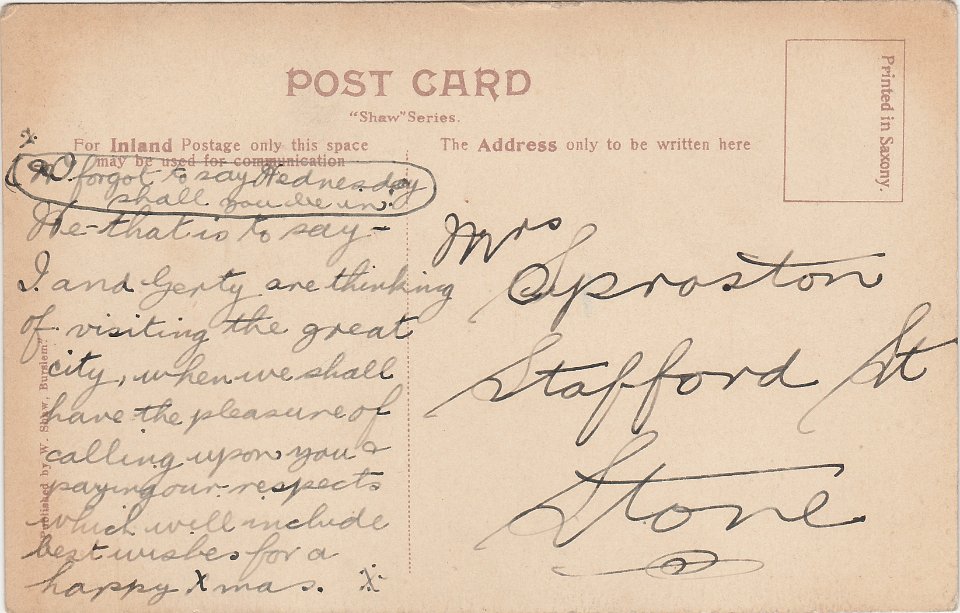 POST CARD
"Shaw" Series.
For Inland Postage only this space
may be used for communication
The Address only to be written here
Printed in Saxony.
Published by W. Shaw, Burslem.
I forgot to say Wednesday
shall you be in?
We - that is to say -
I and Gerty are thinking
of visiting the great
city, when we shall
have the pleasure of
calling upon you &
paying our respects
which will include
best wishes for a
happy Xmas. X
Mrs
Sproston
Stafford St
Stone